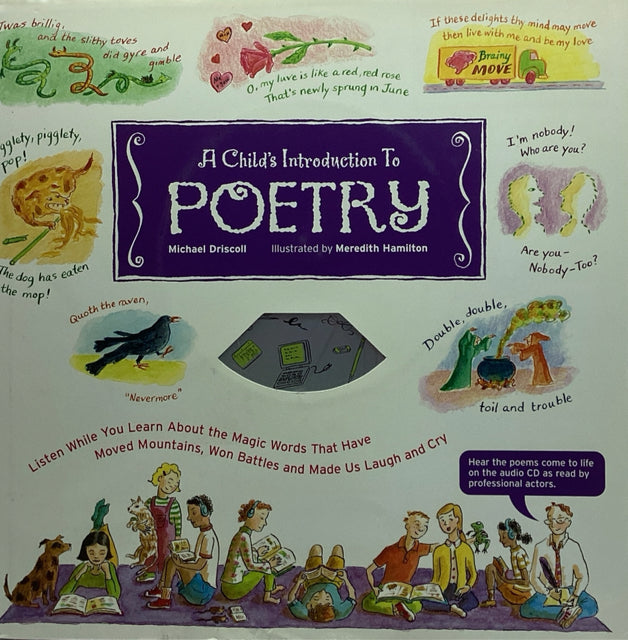 'Twas brillig,
and the slithy toves
did gyre and
gimble
O, my luve is like a red, red rose
That's newly sprung in June
If these delights thy mind may move
then live with me and be my love
Brainy
MOVE
gglety, pigglety,
pop!
The dog has eaten
the mop!
A Child's Introduction To
POETRY
Michael Driscoll Illustrated by Meredith Hamilton
I'm nobody!
Who are you?
Are you-
Nobody-Too?
Quoth the raven,
"Nevermore"
Double, double,
toil and trouble
Listen While You Learn About the Magic Words That Have
Moved Mountains, Won Battles and Made Us Laugh and Cry
Hear the poems come to life
on the audio CD as read by
professional actors.